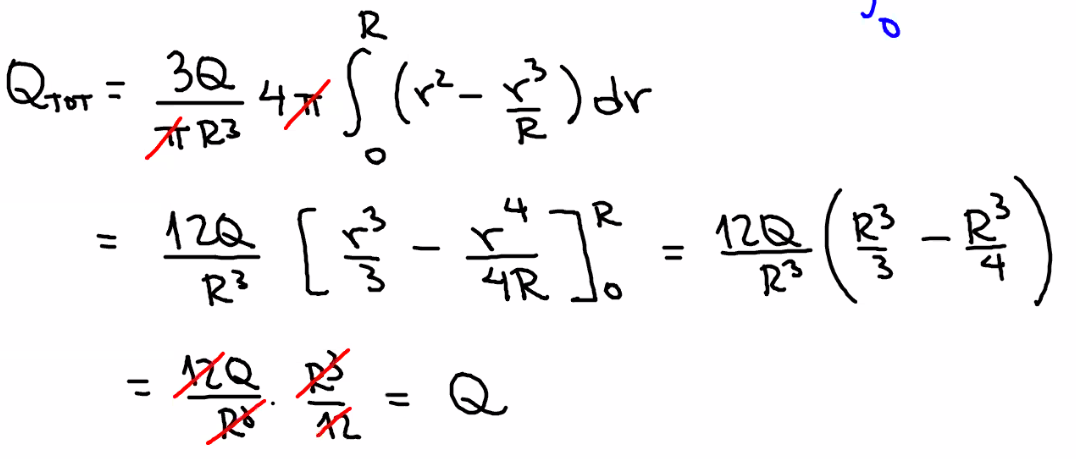 ∫₀
Q_TOT = 3Q/(πR³) 4π ∫₀ᴿ (r² − r³/R) dr
= 12Q/R³ [r³/3 − r⁴/(4R)]₀ᴿ = 12Q/R³ (R³/3 − R³/4)
= 12Q/R³ · R³/12 = Q